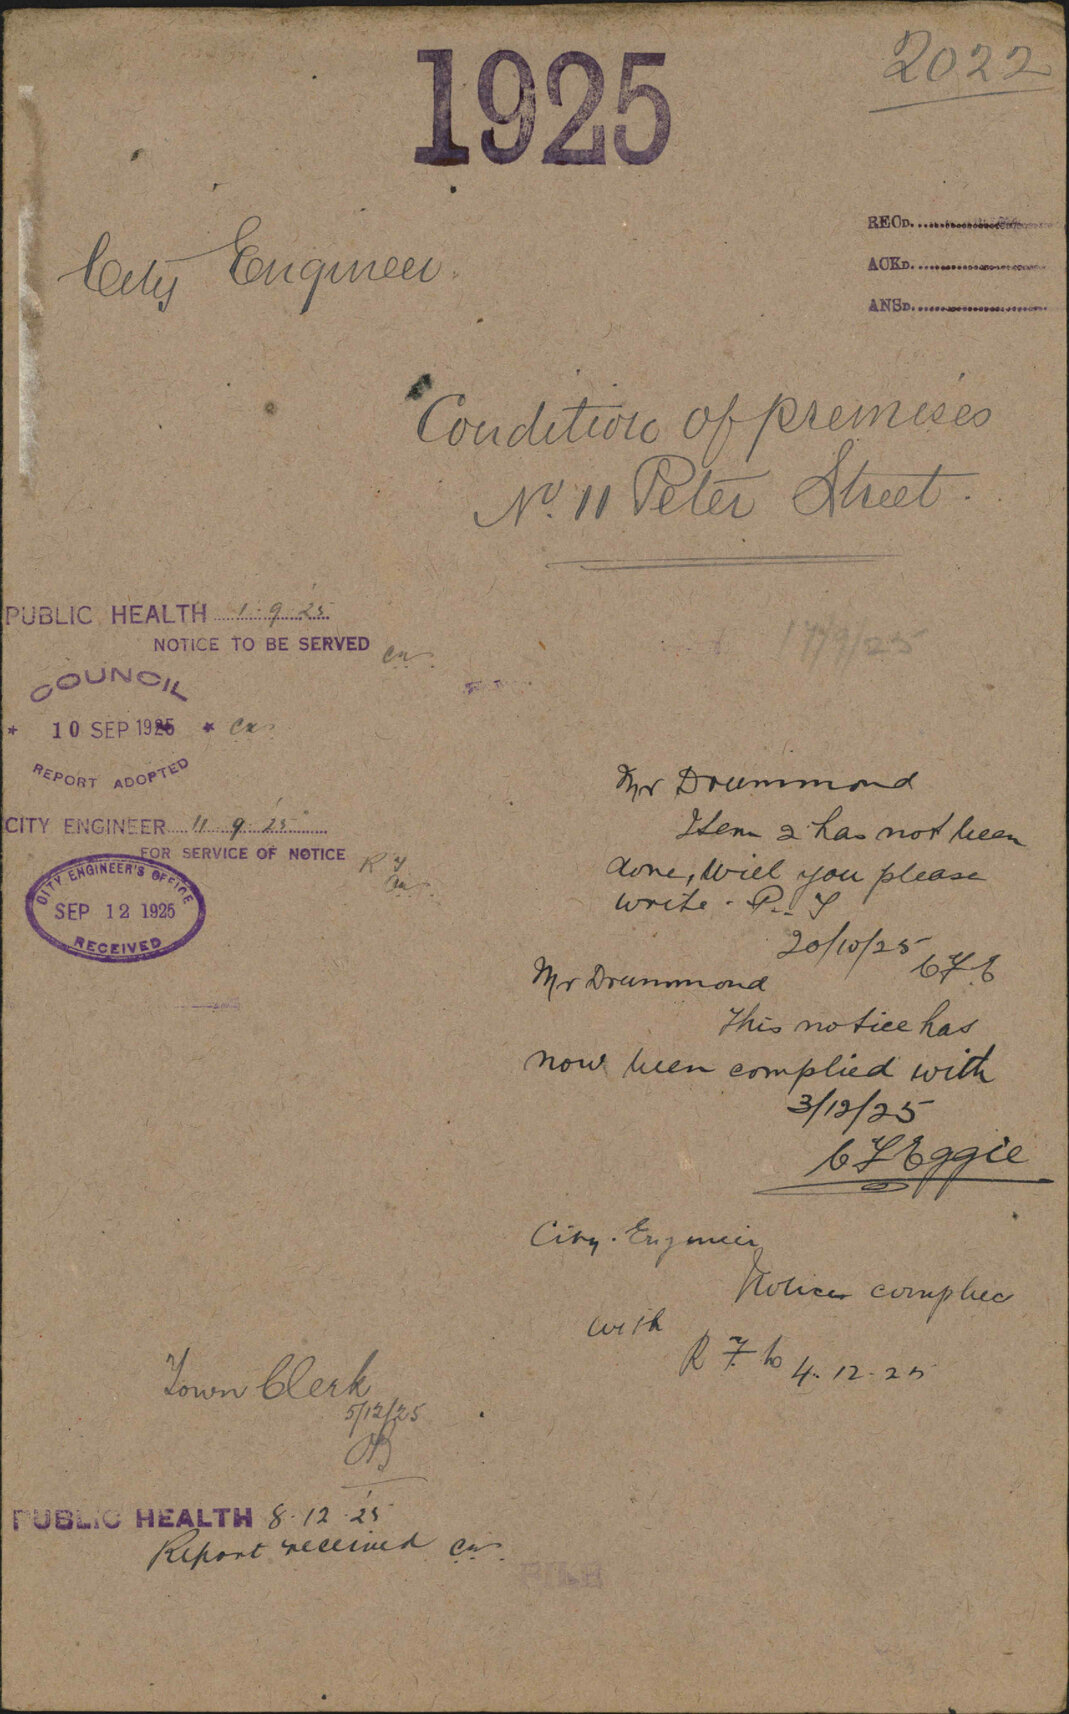 1925
2022
RECD.
City Engineer.
ACKD.
ANSD.
Condition of premises
No. 11 Peter Street.
PUBLIC HEALTH 1.9.25
NOTICE TO BE SERVED
COUNCIL
* 10 SEP 1925 *
REPORT ADOPTED
CITY ENGINEER 11.9.25
FOR SERVICE OF NOTICE
CITY ENGINEER'S OFFICE
SEP 12 1925
RECEIVED
Mr Drummond
Item 2 has not been
done, Will you please
write.
20/10/25
Mr Drummond
This notice has
now been complied with
3/12/25
C F Eggie
City Engineer
Notice complied
with
4.12.25
Town Clerk
5/12/25
PUBLIC HEALTH 8.12.25
Report received